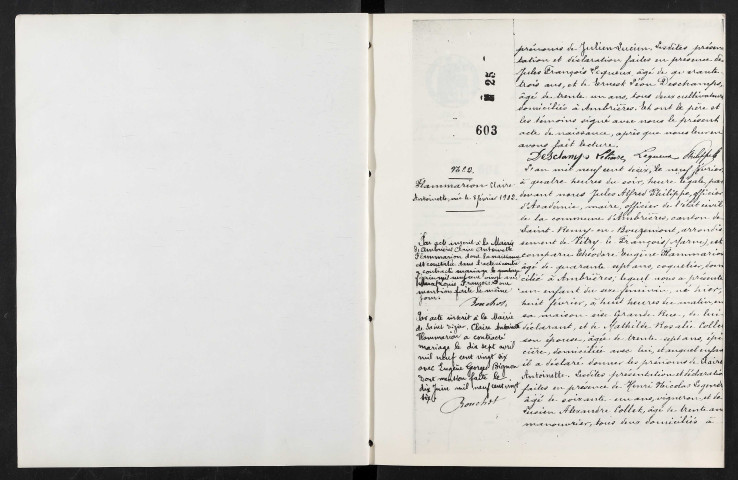 25
603
N° 2.
Flammarion Claire
Antoinette, née le 8 février 1902.
Par acte inscrit à la Mairie
d'Ambrières Claire Antoinette
Flammarion dont la naissance
est constatée dans l'acte
a contracté mariage le
mention faite le même
jour.
Bouchot
Par acte inscrit à la Mairie
de Saint Dizier, Claire Antoinette
Flammarion a contracté
mariage le dix sept avril
mil neuf cent vingt six
avec Eugène Georges
Dont mention faite le
dix Juin mil neuf cent vingt
six
Bouchot
prénoms de Julien Lucien. Lesdites présen
tation et déclaration faites en présence de
Jules François Lequeux, âgé de quarante
trois ans, et de Ernest Léon Deschamps,
âgé de trente un ans, tous deux cultivateurs
domiciliés à Ambrières. Et ont le père et
les témoins signé avec nous le présent
acte de naissance, après que nous leur en
avons fait lecture.
Deschamps Lequeux Philippe
L'an mil neuf cent deux, le neuf février
à quatre heures du soir, heure légale, par
devant nous Jules Alfred Philippe, officier
d'Académie, maire, officier de l'état civil
de la commune d'Ambrières, canton de
Saint-Remy-en-Bouzemont, arrondis
sement de Vitry-le-François (Marne), est
comparu Théodore Eugène Flammarion
âgé de quarante sept ans, domi
cilié à Ambrières, lequel nous a présenté
un enfant du sexe féminin, né hier,
huit février, à huit heures du matin, en
sa maison sise Grande Rue, de lui
déclarant, et de Mathilde Rosalie Collet
son épouse, âgée de trente sept ans, épi
cière, domiciliée avec lui, et auquel enfant
il a déclaré donner les prénoms de Claire
Antoinette. Lesdites présentation et déclaration
faites en présence de Henri Nicolas
âgé de soixante-un ans, vigneron, et de
Lucien Alexandre Collet, âgé de trente ans
manouvrier, tous deux domiciliés à